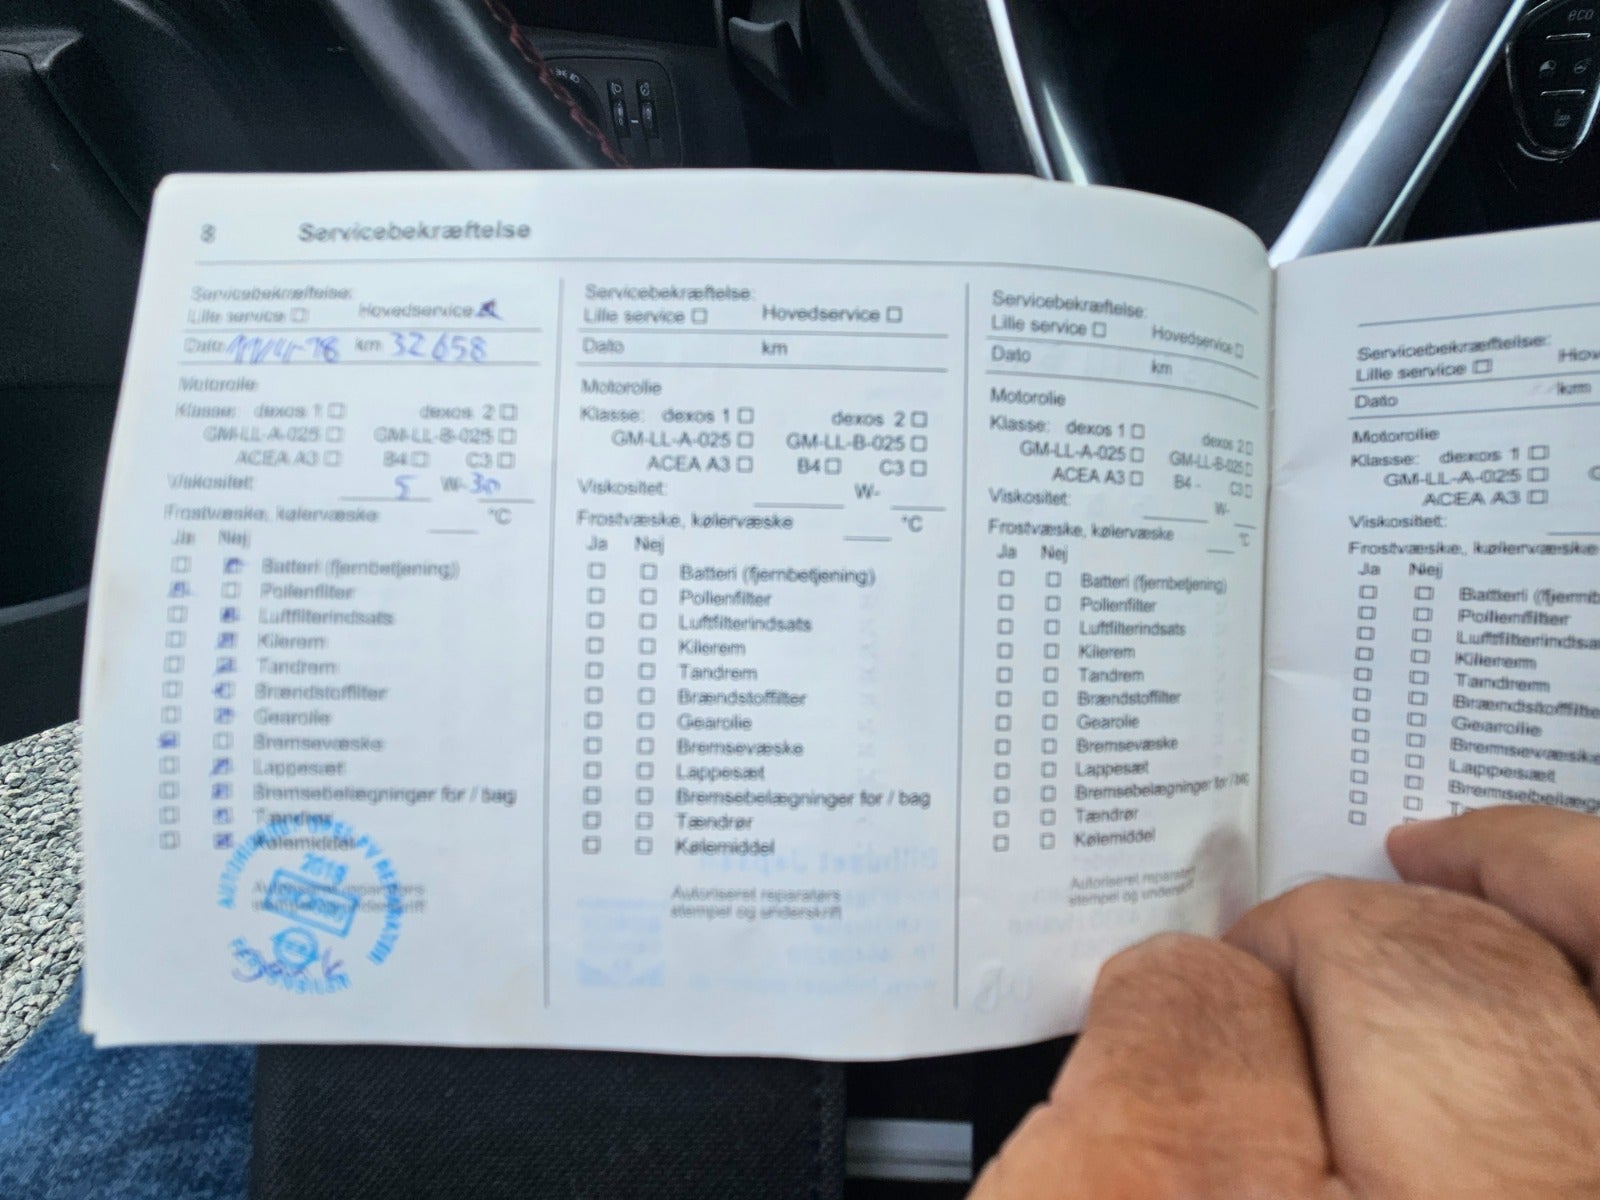 eco
8 Servicebekræftelse
Servicebekræftelse:
Lille service Hovedservice
Dato 11/4-18 km 32658
Motorolie
Klasse: dexos 1 dexos 2
GM-LL-A-025 GM-LL-B-025
ACEA A3 B4 C3
Viskositet: 5 W-30
Frostvæske, kølervæske °C
Ja Nej
Batteri (fjernbetjening)
Pollenfilter
Luftfilterindsats
Kilerem
Tandrem
Brændstoffilter
Gearolie
Bremsevæske
Lappesæt
Bremsebelægninger for / bag
Tændrør
Kølemiddel
Autoriseret reparatørs
stempel og underskrift
Servicebekræftelse:
Lille service Hovedservice
Dato km
Motorolie
Klasse: dexos 1 dexos 2
GM-LL-A-025 GM-LL-B-025
ACEA A3 B4 C3
Viskositet: W-
Frostvæske, kølervæske °C
Ja Nej
Batteri (fjernbetjening)
Pollenfilter
Luftfilterindsats
Kilerem
Tandrem
Brændstoffilter
Gearolie
Bremsevæske
Lappesæt
Bremsebelægninger for / bag
Tændrør
Kølemiddel
Autoriseret reparatørs
stempel og underskrift
Servicebekræftelse:
Lille service Hovedservice
Dato km
Motorolie
Klasse: dexos 1 dexos 2
GM-LL-A-025 GM-LL-B-025
ACEA A3 B4 C3
Viskositet: W-
Frostvæske, kølervæske °C
Ja Nej
Batteri (fjernbetjening)
Pollenfilter
Luftfilterindsats
Kilerem
Tandrem
Brændstoffilter
Gearolie
Bremsevæske
Lappesæt
Bremsebelægninger for / bag
Tændrør
Kølemiddel
Autoriseret reparatørs
stempel og underskrift
Servicebekræftelse:
Lille service
Dato km
Motorolie
Klasse: dexos 1
GM-LL-A-025
ACEA A3
Viskositet:
Frostvæske, kølervæske
Ja Nej
Batteri (fjernb
Pollenfilter
Luftfilterindsa
Kilerem
Tandrem
Brændstoffilte
Gearolie
Bremsevæske
Lappesæt
Bremsebelæg